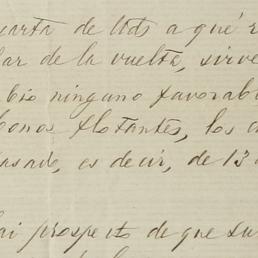 carta de Uds a qué r
lar de la vuelta, sirve
bio ninguno favorabl
bonos flotantes, los c
asado, es decir, de 13
prospecto de que su